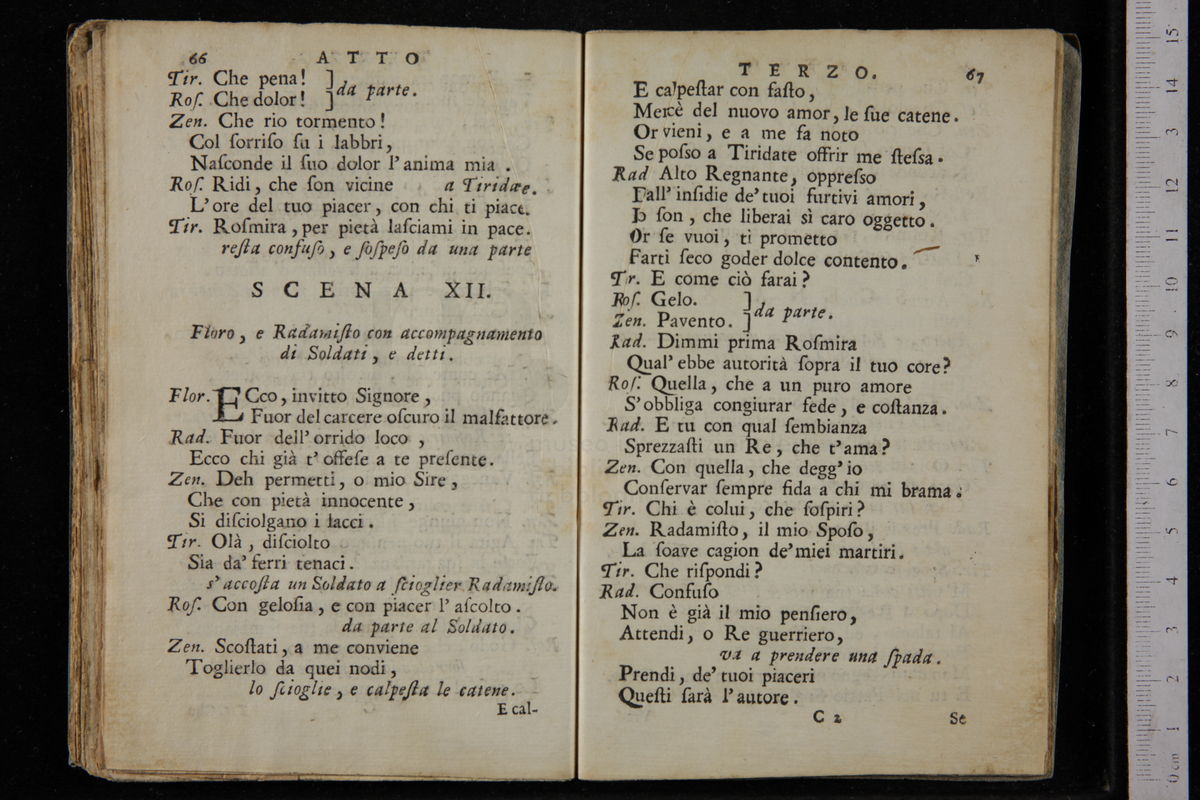 66 ATTO
Tir. Che pena! ] da parte.
Roſ. Che dolor! ]
Zen. Che rio tormento!
Col ſorriſo ſu i labbri,
Naſconde il ſuo dolor l'anima mia .
Roſ. Ridi, che ſon vicine a Tiridate.
L'ore del tuo piacer, con chi ti piace.
Tir. Roſmira, per pietà laſciami in pace.
reſta confuſo, e ſoſpeſo da una parte
SCENA XII.
Floro, e Radamiſto con accompagnamento
di Soldati, e detti.
Flor. ECco, invitto Signore,
Fuor del carcere oſcuro il malfattore.
Rad. Fuor dell' orrido loco ,
Ecco chi già t' offeſe a te preſente.
Zen. Deh permetti, o mio Sire,
Che con pietà innocente,
Si diſciolgano i lacci.
Tir. Olà, diſciolto
Sia da' ferri tenaci.
s' accoſta un Soldato a ſcioglier Radamiſto.
Roſ. Con geloſia, e con piacer l' aſcolto.
da parte al Soldato.
Zen. Scoſtati, a me conviene
Toglierlo da quei nodi,
lo ſcioglie, e calpeſta le catene.
E cal-
TERZO. 67
E calpeſtar con faſto,
Mercè del nuovo amor, le ſue catene.
Or vieni, e a me fa noto
Se poſso a Tiridate offrir me ſteſsa.
Rad Alto Regnante, oppreſso
Dall' inſidie de' tuoi furtivi amori,
Io ſon, che liberai sì caro oggetto.
Or ſe vuoi, ti prometto
Farti ſeco goder dolce contento.
Tir. E come ciò farai?
Roſ. Gelo. ] da parte.
Zen. Pavento. ]
Rad. Dimmi prima Roſmira
Qual' ebbe autorità ſopra il tuo core?
Roſ. Quella, che a un puro amore
S' obbliga congiurar fede, e coſtanza.
Rad. E tu con qual ſembianza
Sprezzaſti un Re, che t'ama?
Zen. Con quella, che degg' io
Conſervar ſempre fida a chi mi brama.
Tir. Chi è colui, che ſoſpiri?
Zen. Radamiſto, il mio Spoſo,
La ſoave cagion de' miei martiri.
Tir. Che riſpondi?
Rad. Confuſo
Non è già il mio penſiero,
Attendi, o Re guerriero,
va a prendere una ſpada.
Prendi, de' tuoi piaceri
Queſti ſarà l' autore.
C 2 Se